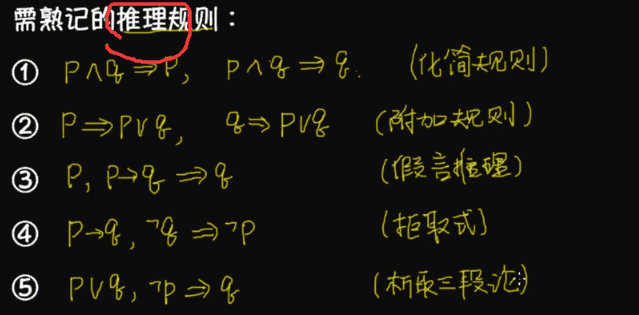 需熟记的推理规则：
① P∧q⇒P, P∧q⇒q. (化简规则)
② P⇒P∨q, q⇒P∨q (附加规则)
③ P, P→q⇒q (假言推理)
④ P→q, ¬q⇒¬P (拒取式)
⑤ P∨q, ¬p⇒q (析取三段论)